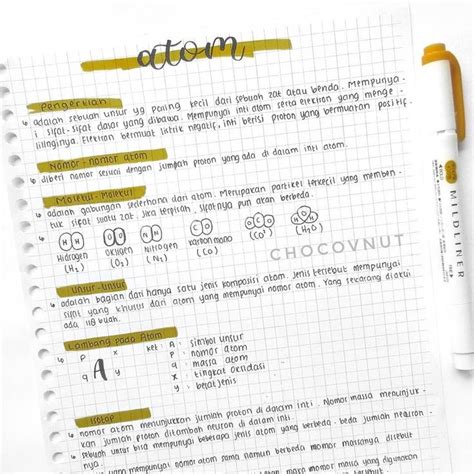 atom
Pengertian
adalah sebuah unsur yg paling kecil dari sebuah zat atau benda. Mempunya-
i sifat-sifat dasar yang dibawa. Mempunyai inti atom serta elektron yang menge-
lilinginya. Elektron bermuat listrik negatif, inti berisi proton yang bermuatan positif.
Nomor-nomor atom
diberi nomor sesuai dengan jumlah proton yang ada di dalam inti atom.
Molekul-Molekul
adalah gabungan sederhana dari atom. Merupakan partikel terkecil yang memben-
tuk sifat suatu zat. Jika terpisah, sifatnya pun akan berbeda.
H H O O N N C O O C O H O H
Hidrogen oksigen Nitrogen karbon mono
(H₂) (O₂) (N₂) (CO) (CO²) (H₂O)
CHOCOVNUT
Unsur-unsur
adalah bagian dari hanya satu jenis komposisi atom. Jenis tersebut mempunyai
sifat yang khusus dari atom yang mempunyai nomor atom. Yang sekarang diakui
ada 118 buah.
Lambang pada Atom
P x ket: A : simbol unsur
A P : nomor atom
q y q : massa atom
x : tingkat oksidasi
y : berat jenis
Isotop
nomor atom menunjukkan jumlah proton di dalam inti. Nomor massa menunjuk-
kan jumlah proton ditambah neuron di dalam inti.
Sebuah unsur bisa mempunyai beberapa jenis atom yang berbeda-beda jumlah neutron-
nya. yang mempunyai nomor atom sama namun berbeda nomor massanya disebut
MILDLINER